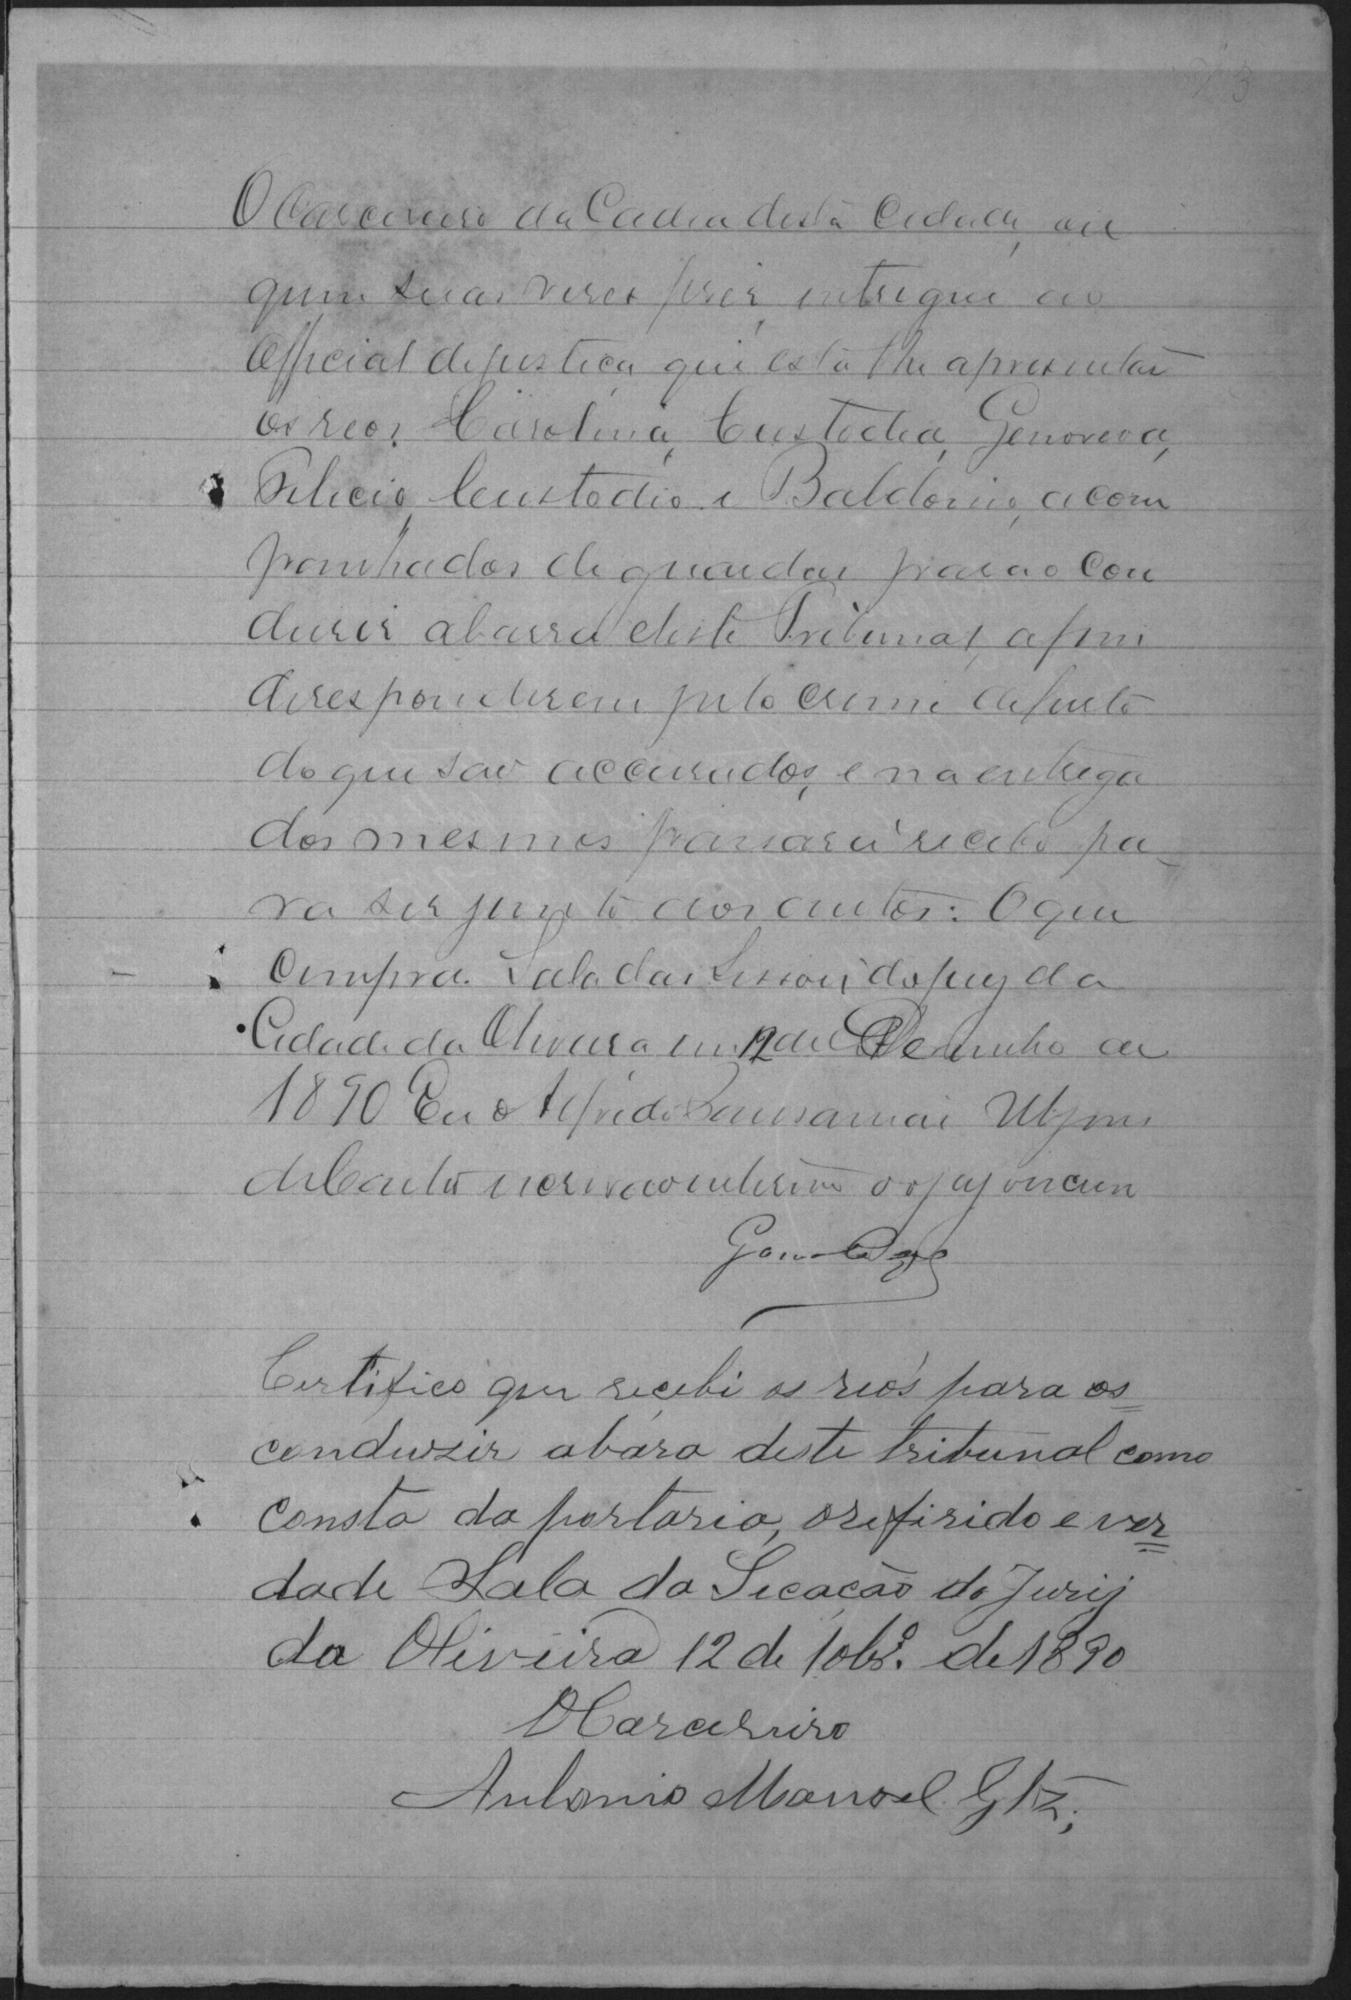 O Carcereiro da Cadea desta Cidade, ou
quem suas veses fizer, entregue ao
Official de justiça que esta lhe apresentar
os reos Carolina, Custodia, Genoveva,
Felicio, Custodio e Baldoino, acom
panhados de guardas para o con
dusir a barra deste Tribunal, afim
de responderem pelo crime de furto
do que são accusados, e na entrega
dos mesmos passará recibo pa-
ra ser junto aos autos: O que
Cumpra. Sala das Sessões do jury da
Cidade da Oliveira em 12 de Desembro de
1890 Eu Alfredo
de Castro escrivão interino do jury

Certifico que recebi os reos para os
conduzir abara deste tribunal como
consta da portaria, o refirido e ver
dade Sala da Secação do Jurij
da Oliveira 12 de 10br.º de 1890
O Carcereiro
Antonio Manoel Glz;